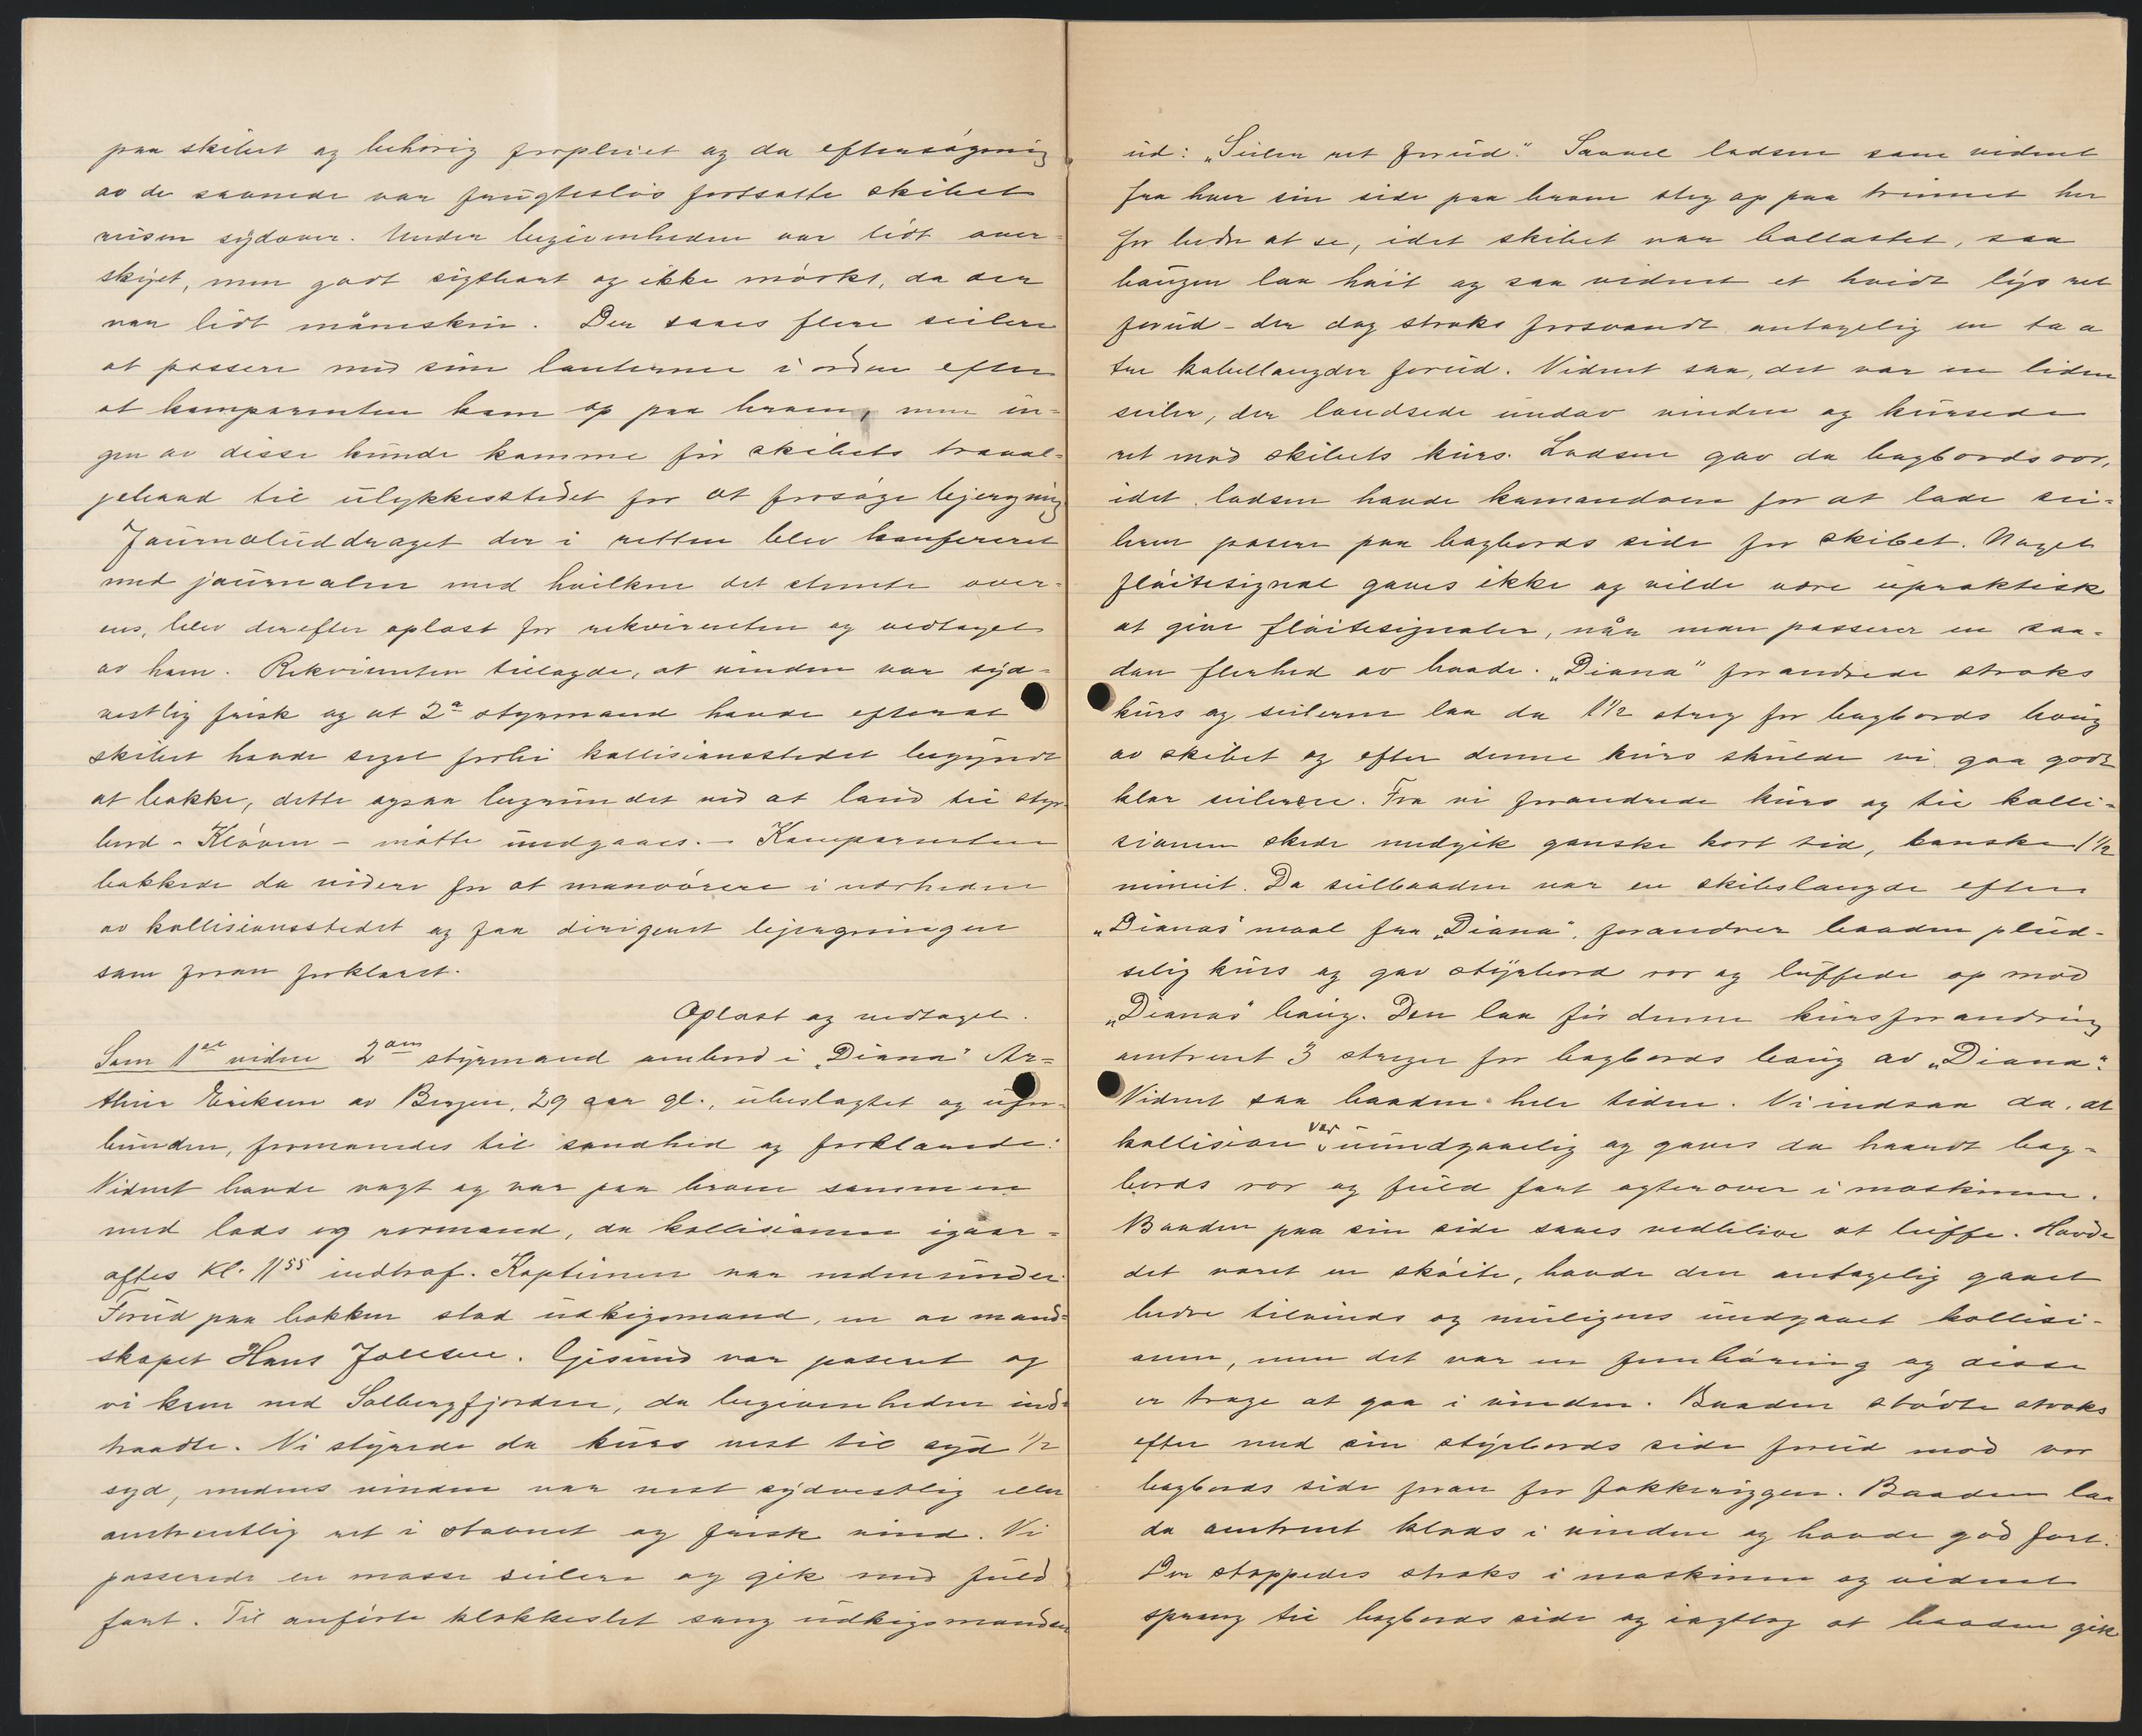 paa skibet og behørig forpleiet og da eftersøgning
av de savnede var frugtesløs fortsatte skibet
reisen sydover. Under begivenheden var lidt over-
skyet, men godt sigtbart og ikke mørkt, da der
var lidt måneskin. Der saaes flere seilere
at passere med sine lanterner i orden efter
at komparenten kom op paa broen, men in-
gen av disse kunde komme før skibets traval-
jebaad til ulykkesstedet for at forsøge bjergning
Journaluddraget der i retten blev konfereret
med journalen med hvilken det stemte over-
ens, blev derefter oplæst for rekvirenten og vedtaget
av ham. Rekvirenten tillagde, at vinden var syd-
vestlig frisk og at 2a styrmand havde efterat
skibet havde seget forbi kollisionsstedet begyndt
at bakke, dette ogsaa begrundet ved at land til styr-
bord - Kløven - måtte undgaaes. - Komparenten
bakkede da videre for at manøvrere i nærheden
av kollisionsstedet og faa dirigeret bjergningen
som foran forklaret.
Oplæst og vedtaget.
Som 1ste vidne 2den styrmand ombord i „Diana" Ar-
thur Eriksen av Bergen, 29 aar gl., ubeslægtet og ufor-
bunden, formanedes til sandhed og forklarede:
Vidnet havde vagt og var paa broen sammen
med lods og rormand, da kollisionen igaar-
aftes kl. 1155 indtraf. Kapteinen var nedenunder.
Forud paa bakken stod udkigsmand, en av mand-
skapet Hans Jolesen. Gisund var paseret og
vi kom ned Solbergfjorden, da begivenheden ind-
traadte. Vi styrede da kurs vest til syd 1/2
syd, medens vinden var vest sydvestlig eller
omtrentlig ret i stavnet og frisk vind. Vi
passerede en masse seilere og gik med fuld
fart. Til anførte klokkeslet sang udkigsmanden
ud: „Seiler ret forud." Saavel lodsen som vidnet
fra hver sin side paa broen steg op paa trinnet her
for bedre at se, idet skibet var ballastet, saa
baugen laa høit og saa vidnet et hvidt lys ret
forud - der dog straks forsvandt antagelig en to a
tre kabellængder forud. Vidnet saa, det var en liden
seiler, der landsede undav vinden og kursede
ret mod skibets kurs. Lodsen gav da bagbords ror,
idet lodsen havde kamandoen for at lade sei-
leren pasere paa bagbords side for skibet. Noget
fløitesignal gaves ikke og vilde være upraktisk
at give fløitesignaler, når man passerer en saa-
dan flerhed av baade. „Diana" forandrede straks
kurs og seileren laa da 1 1/2 streg for bagbords baug
av skibet og efter denne kurs skulde vi gaa godt
klar seileren. Fra vi forandrede kurs og til kolli-
sionen skede medgik ganske kort tid, kanske 1 1/2
minut. Da seilbaaden var en skibslængde efter
„Dianas" maal fra „Diana", forandrer baaden plud-
selig kurs og gav styrbord ror og luffede op mod
„Dianas" baug. Den laa før denne kursforandring
omtrent 3 streger for bagbords baug av „Diana".
Vidnet saa baaden hele tiden. Vi indsaa da, at
kollision var uundgaaelig og gaves da haardt bag-
bords ror og fuld fart agterover i maskinen.
Baaden paa sin side saaes vedblive at luffe. Havde
det været en skøite, havde den antagelig gaaet
bedre tilvinds og muligens undgaaet kollisi-
onen, men det var en fembøring og disse
er træge at gaa i vinden. Baaden stødte straks
efter med sin styrbords side forud mod vor
bagbords side foran for fokkeriggen. Baaden laa
da omtrent klods i vinden og havde god fart.
Der stoppedes straks i maskinen og vidnet
sprang til bagbords side og iagttog at baaden gik